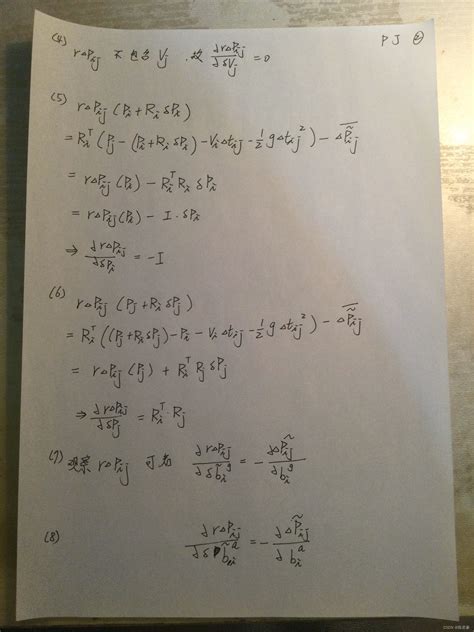 PJ ②
(4) r△Pij 不包含 Vj ,故 ∂r△Pij/∂δVj = 0
(5) r△Pij (Pi + Ri δPi)
= Ri^T (Pj - (Pi + Ri δPi) - Vi△tij - 1/2 g△tij^2) - △P̃ij
= r△Pij (Pi) - Ri^T Ri δPi
= r△Pij (Pi) - I · δPi
⇒ ∂r△Pij/∂δPi = -I
(6) r△Pij (Pj + Rj δPj)
= Ri^T ((Pj + Rj δPj) - Pi - Vi△tij - 1/2 g△tij^2) - △P̃ij
= r△Pij (Pj) + Ri^T Rj δPj
⇒ ∂r△Pij/∂δPj = Ri^T · Rj
(7) 观察 r△Pij 可知 ∂r△Pij/∂δb̃i^g = - ∂△P̃ij/∂bi^g
(8) ∂r△Pij/∂δb̃i^a = - ∂△P̃ij/∂bi^a